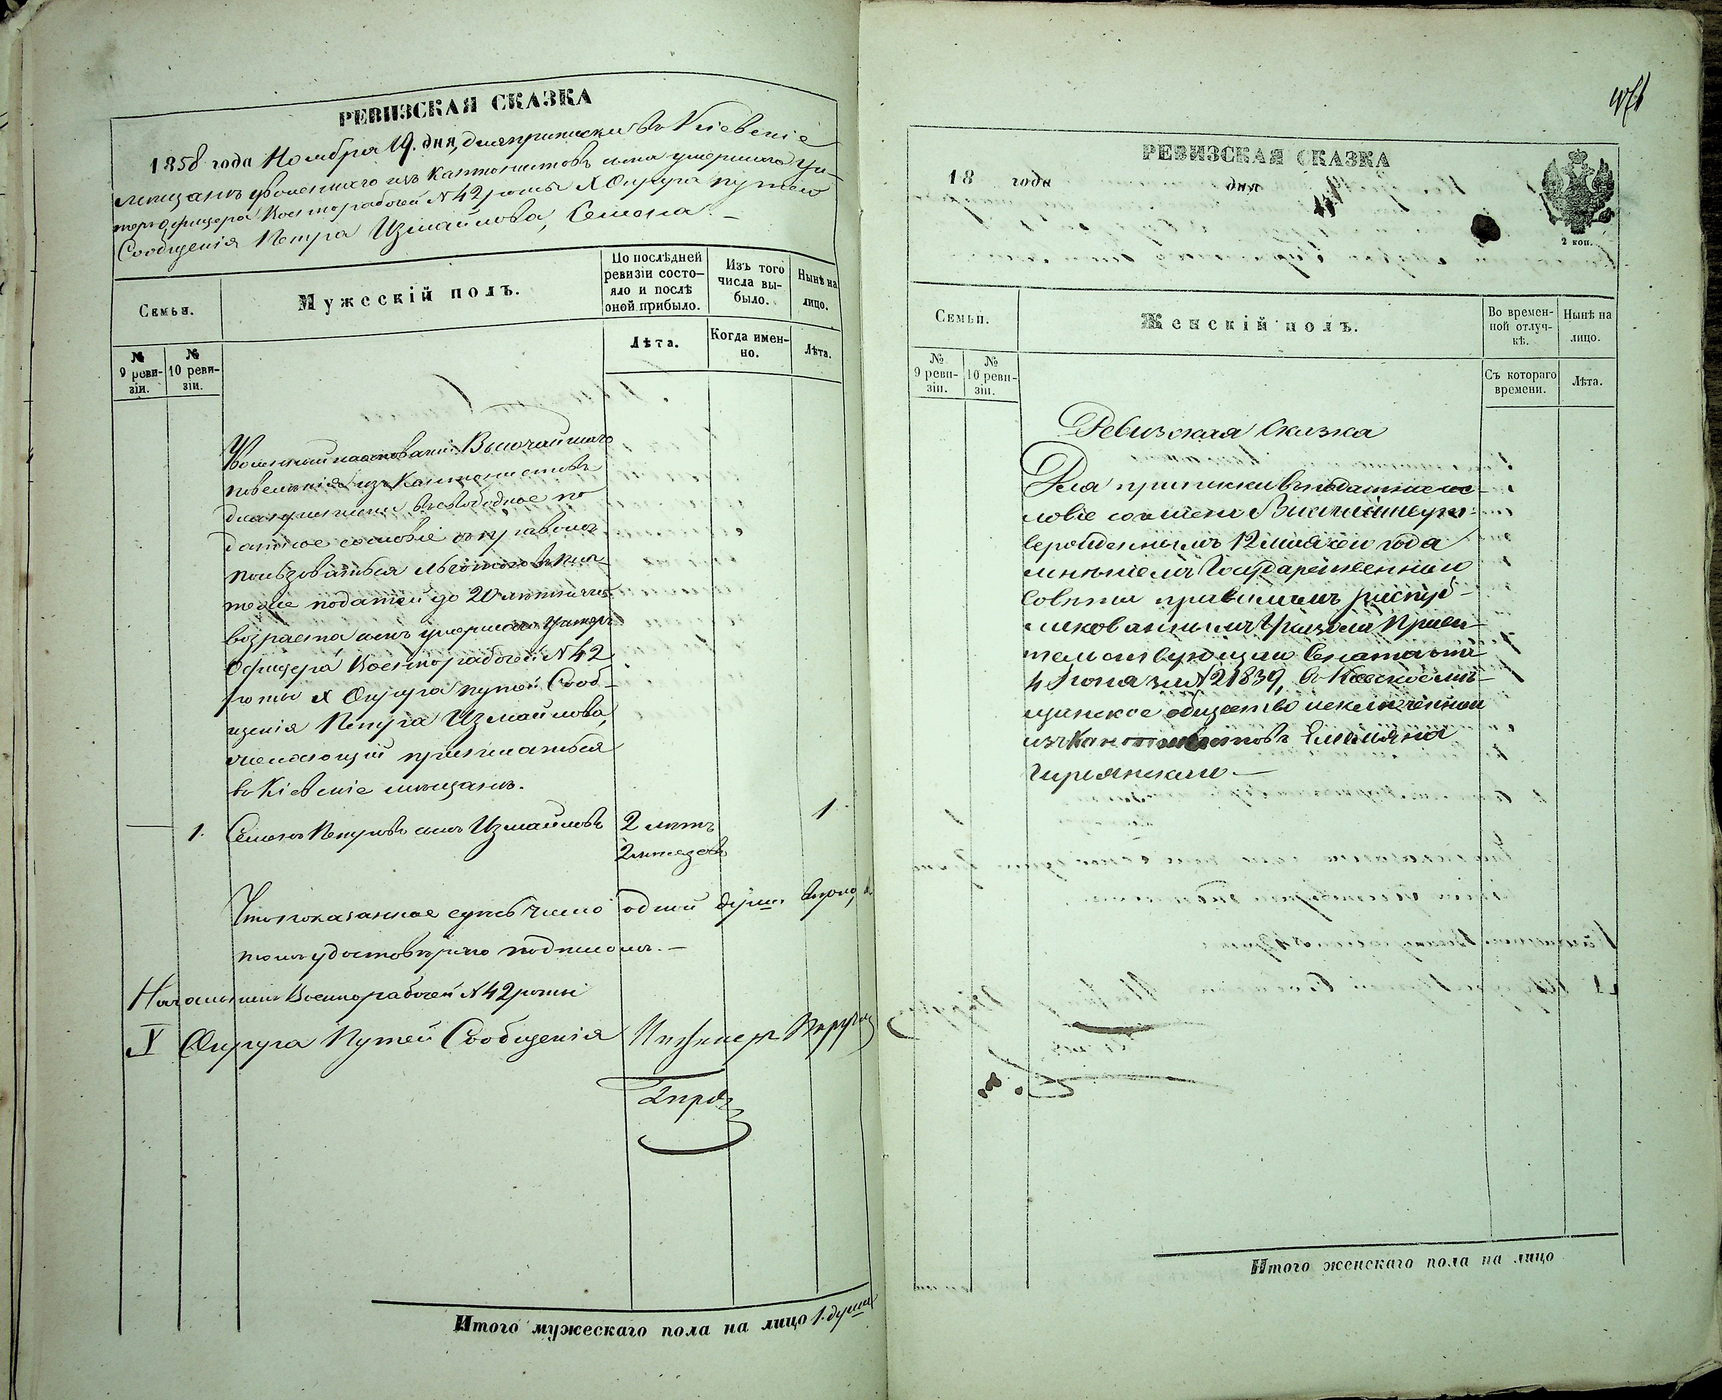 РЕВИЗСКАЯ СКАЗКА
1858 года Ноября 19. дня, для приписки въ Кіевскіе
мѣщане уволеннаго изъ Кантонистовъ сына умершаго Ун-
теръ офицера Военнорабочей N 42 роты X Округа путей
Сообщенія Петра Измайлова, Семена. —
Семьи.
Мужескій полъ.
По послѣдней ревизіи состо-
яло и послѣ
оной прибыло.
Изъ того
числа вы-
было.
Нынѣ на
лицо.
№
9 реви-
зіи.
№
10 реви-
зіи.
Лѣта.
Когда имен-
но.
Лѣта.
Уволенный на основаніи Высочайшаго
повелѣнія изъ Кантонистовъ
для приписки въ свободное по
датное сословіе съ правомъ
пользоваться льготою въ пла-
тежѣ податей до 20 лѣтняго
возраста сынъ умершаго Унтеръ
Офицера Военнорабочей N 42
роты X Округа путей Сооб-
щенія Петра Измайлова,
желающій приписаться
въ Кіевскіе мѣщане.
— 1. Семенъ Петровъ сынъ Измайловъ 2 лѣтъ 1
2 мѣсяцовъ
Что показанное здѣсь число одной души вѣрно,
въ томъ удостовѣряю подписомъ. —
Начальникъ Военнорабочей N 42 роты
X Округа Путей Сообщенія Инженеръ
Итого мужескаго пола на лицо 1. душа
РЕВИЗСКАЯ СКАЗКА
18 года дня
2 коп.
Семьи.
Женскій полъ.
Во времен-
ной отлуч-
кѣ.
Нынѣ на
лицо.
№
9 реви-
зіи.
№
10 реви-
зіи.
Съ котораго
времени.
Лѣта.
Ревизская Сказка
Для приписки въ податное со-
словіе согласно Высочайше ут-
вержденнымъ 12 мая сего года
мнѣніемъ Государственнаго
Совѣта правиламъ распуб-
ликованнымъ Указомъ Прави-
тельствующаго Сената отъ
4 Іюня за N 21839, въ Кіевское мѣ-
щанское общество исключенный
изъ Кантонистовъ Емельяна